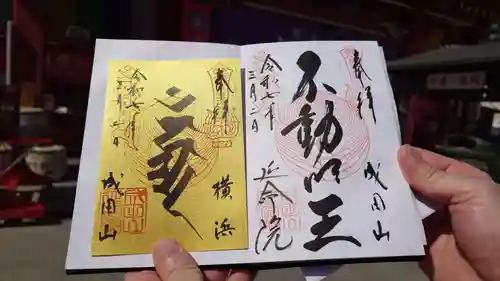 奉拝
成田山
不動明王
令和七年
三月二日
延命院
奉拝
横浜
令和七年
三月二日
成田山